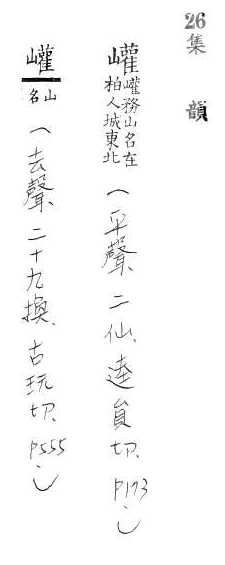 26集韻
巏巏務山名在柏人城東北（平聲、二仙、逵員切、P173。）
巏山名（去聲、二十九換、古玩切、P555。）